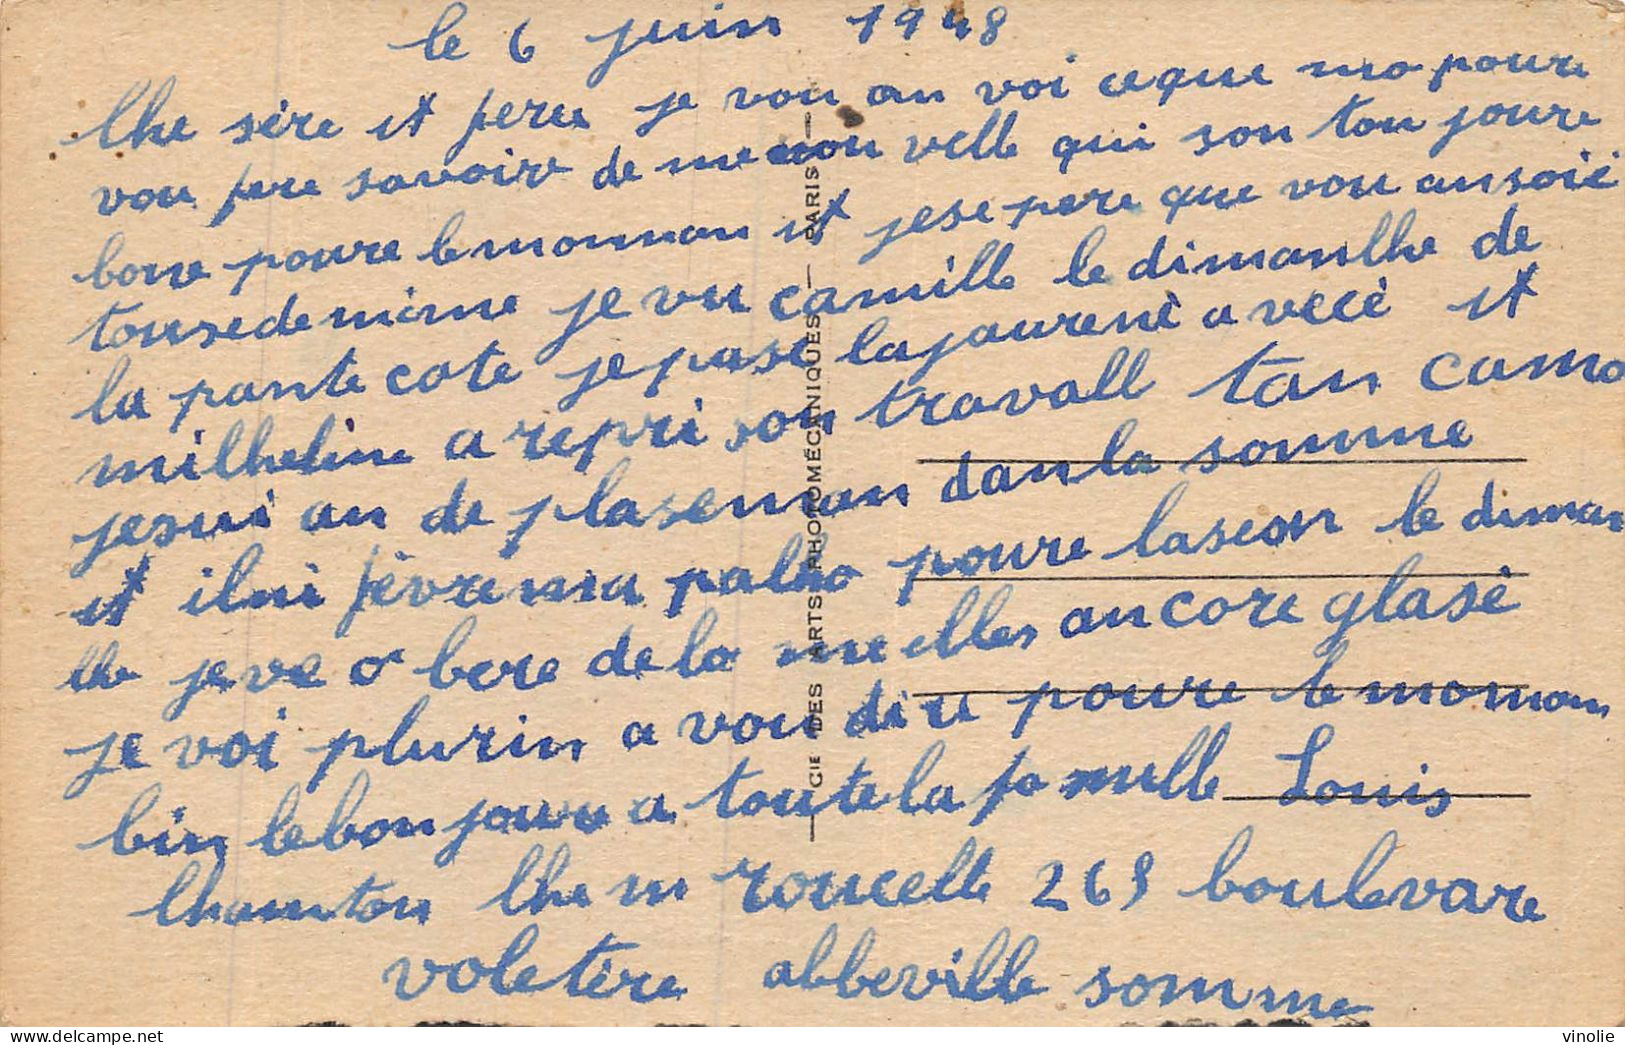 le 6 juin 1948
Che sère et frere je vou an voi ceque mo poure
vou fere savoire de me nouvelle qui son tou joure
bone poure le monnan et jese pere que vou ansoié
tousedemime je vu camille le dimanche de
la pante cote je pase lajaurené avecé et
milheline a repri son travall tan camo
jesui an de plaseman danla somme
et ilni fèvre ma palho poure laseon le diman
che je ve o bore dela melles ancore glasé
je voi plurin a vou dire poure le moman
bin lebon joure a toute la famille Louis
chanton che m roucelle 269 boulevare
voletère abbeville somme
CIE DES ARTS PHOTOMÉCANIQUES — PARIS
vinolie